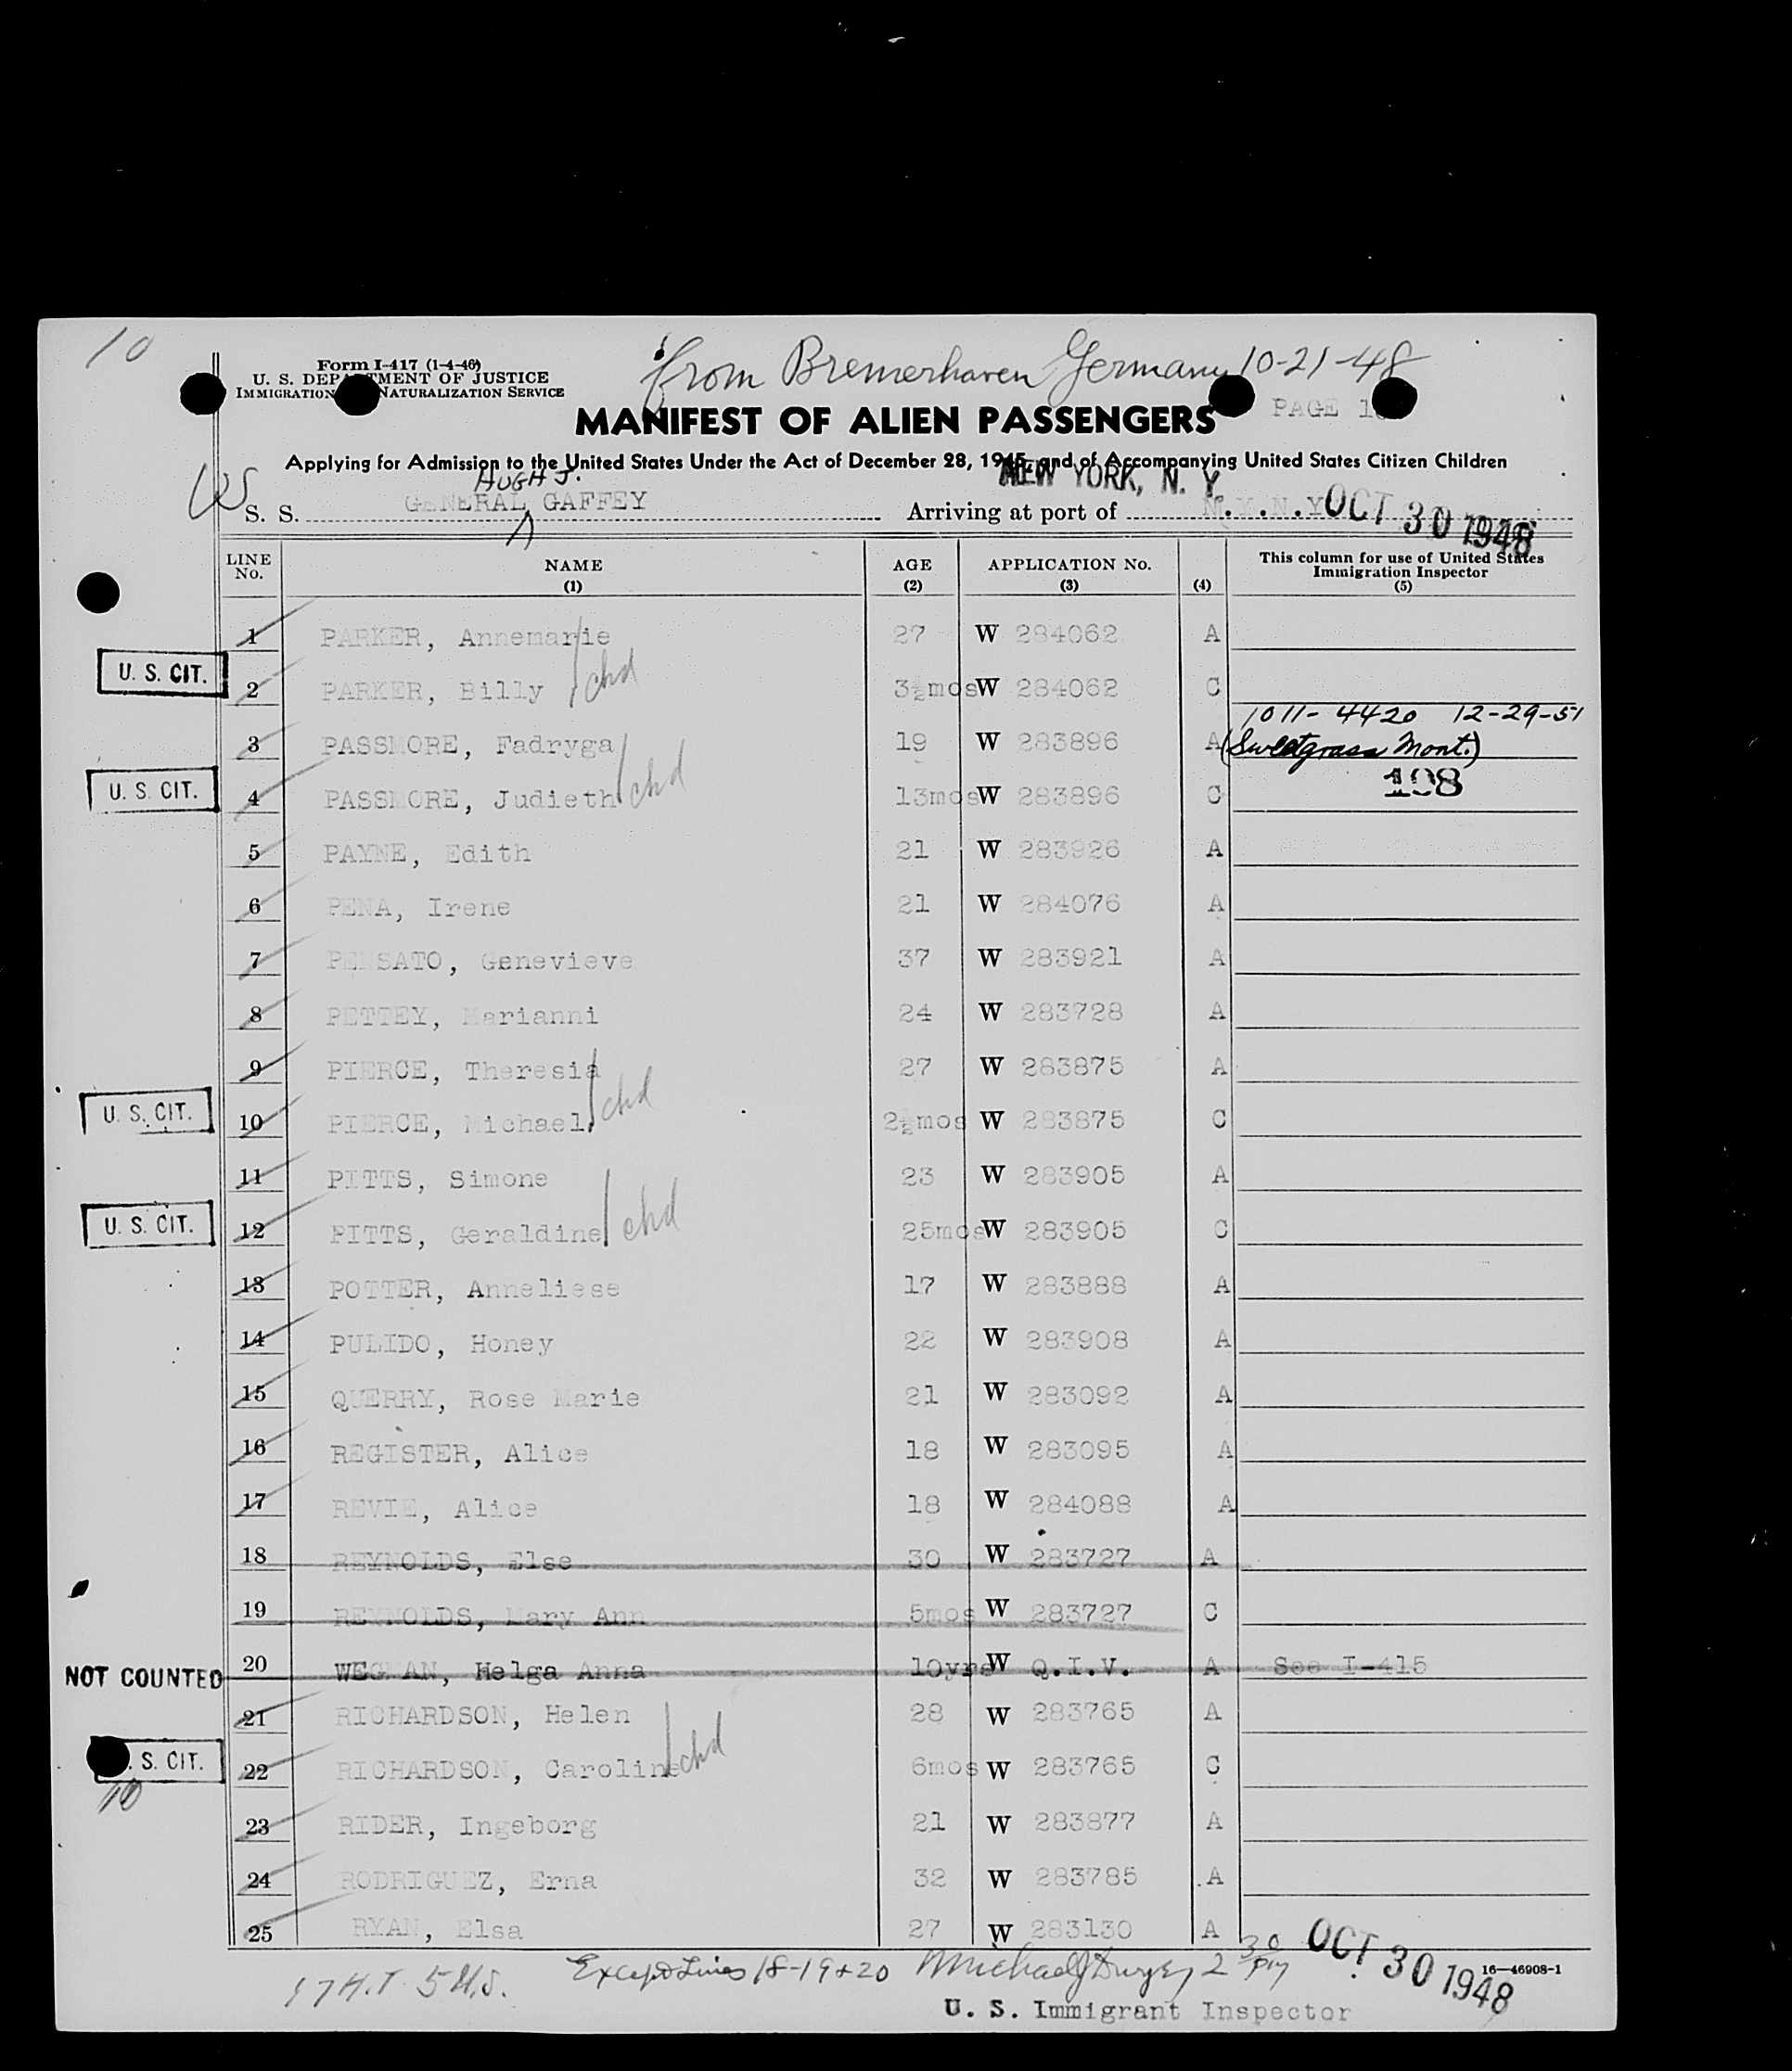 10
from Bremerhaven Germany 10-21-48
Form I-417 (1-4-46)
U. S. DEPARTMENT OF JUSTICE
IMMIGRATION NATURALIZATION SERVICE
MANIFEST OF ALIEN PASSENGERS
PAGE
Applying for Admission to the United States Under the Act of December 28, 1945, and of Accompanying United States Citizen Children
HUGH J.
NEW YORK, N. Y.
S. S. GENERAL GAFFEY Arriving at port of N.Y.N.Y OCT 30 1948
LINE No. NAME (1) AGE (2) APPLICATION No. (3) (4) This column for use of United States Immigration Inspector (5)
1 PARKER, Annemarie 27 W 284062 A
U. S. CIT. 2 PARKER, Billy chd 3½mos W 284062 C
1011-4420 12-29-51
3 PASSMORE, Fadryga 19 W 283896 A (Sweetgrass Mont.)
108
U. S. CIT. 4 PASSMORE, Judieth chd 13mos W 283896 C
5 PAYNE, Edith 21 W 283926 A
6 PENA, Irene 21 W 284076 A
7 PENSATO, Genevieve 37 W 283921 A
8 PETTEY, Marianni 24 W 283728 A
9 PIERCE, Theresia 27 W 283875 A
U. S. CIT. 10 PIERCE, Michael chd 2½mos W 283875 C
11 PITTS, Simone 23 W 283905 A
U. S. CIT. 12 PITTS, Geraldine chd 25mos W 283905 C
13 POTTER, Anneliese 17 W 283888 A
14 PULIDO, Honey 22 W 283908 A
15 QUERRY, Rose Marie 21 W 283092 A
16 REGISTER, Alice 18 W 283095 A
17 REVIE, Alice 18 W 284088 A
18 REYNOLDS, Else 30 W 283727 A
19 REYNOLDS, Mary Ann 5mos W 283727 C
NOT COUNTED 20 WEGMAN, Helga Anna 10yrs W Q.I.V. A See I-415
21 RICHARDSON, Helen 28 W 283765 A
S. CIT. 22 RICHARDSON, Caroline chd 6mos W 283765 C
10
23 RIDER, Ingeborg 21 W 283877 A
24 RODRIGUEZ, Erna 32 W 283785 A
25 RYAN, Elsa 27 W 283130 A
17 H.T. 5 U.S. Except Lines 18-19+20 Michael J Dwyer 2 30 PM OCT 30 1948
16—46908-1
U. S. Immigrant Inspector